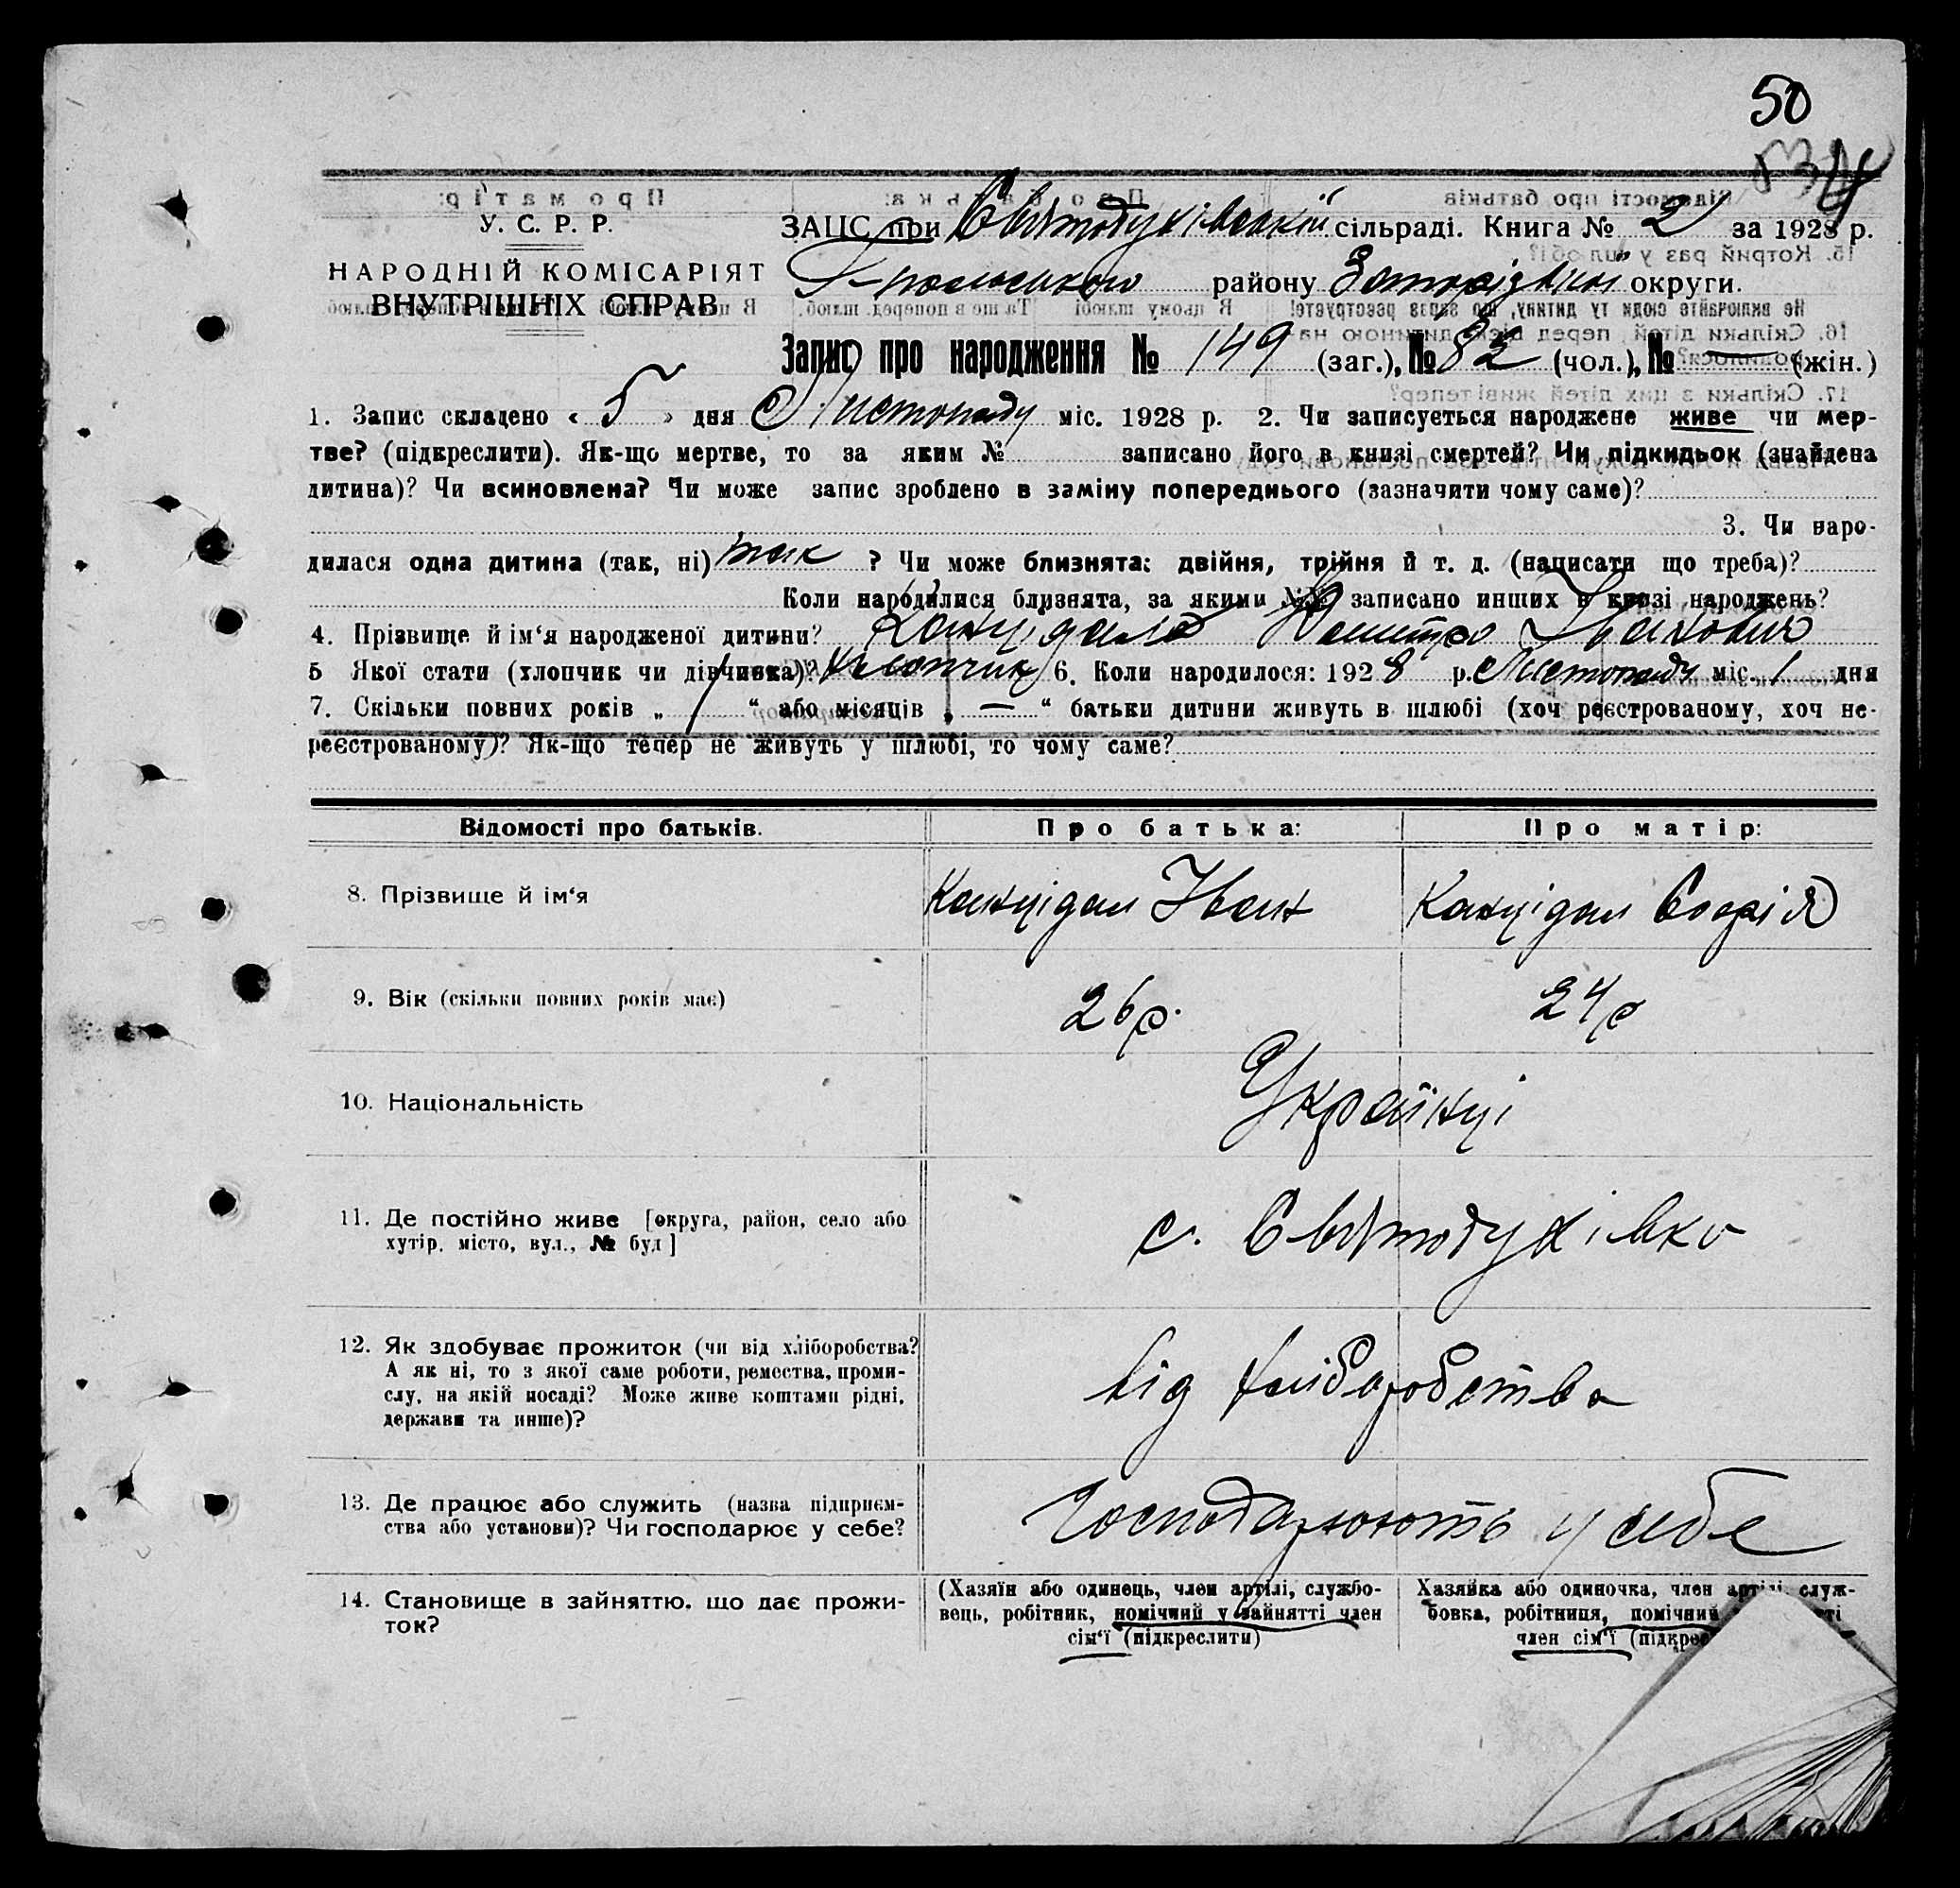 50
У. С. Р. Р.
НАРОДНІЙ КОМІСАРІЯТ
ВНУТРІШНІХ СПРАВ
ЗАЦС при Святодухівській сільраді. Книга № 2 за 1928 р.
району Запорізької округи.
Запис про народження № 149 (заг.), № 82 (чол.), № — (жін.)
1. Запис складено « 5 » дня Листопаду міс. 1928 р. 2. Чи записується народжене живе чи мер-
тве? (підкреслити). Як-що мертве, то за яким № записано його в книзі смертей? Чи підкидьок (знайдена
дитина)? Чи всиновлена? Чи може запис зроблено в заміну попереднього (зазначити чому саме)?
3. Чи наро-
дилася одна дитина (так, ні) так ? Чи може близнята: двійня, трійня й т. д. (написати що треба)?
Коли народилися близнята, за якими №№ записано инших в книзі народжень?
4. Прізвище й ім‘я народженої дитини? Канцідал Дмитро Іванович
5 Якої стати (хлопчик чи дівчинка)? Хлопчик 6. Коли народилося: 1928 р. Листопаду міс. 1 дня
7. Скільки повних років „ 1 “ або місяців „ — “ батьки дитини живуть в шлюбі (хоч реєстрованому, хоч не-
реєстрованому)? Як-що тепер не живуть у шлюбі, то чому саме?
Відомості про батьків. Про батька: Про матір:
8. Прізвище й ім‘я Канцідал Іван Канцідал Софія
9. Вік (скільки повних років має) 26 р. 24 р
10. Національність Українці
11. Де постійно живе [округа, район, село або с. Святодухівка
хутір, місто, вул., № буд]
12. Як здобуває прожиток (чи від хліборобства? від хліборобства
А як ні, то з якої саме роботи, ремества, проми-
слу, на якій посаді? Може живе коштами рідні,
держави та инше)?
13. Де працює або служить (назва підприєм- Господарюють у себе
ства або установи)? Чи господарює у себе?
14. Становище в зайняттю, що дає прожи-
ток?
(Хазяїн або одинець, член артілі, службо-
вець, робітник, помічний у зайнятті член
сім‘ї (підкреслити)
Хазяйка або одиночка, член артілі, служ-
бовка, робітниця, помічний
член сім‘ї